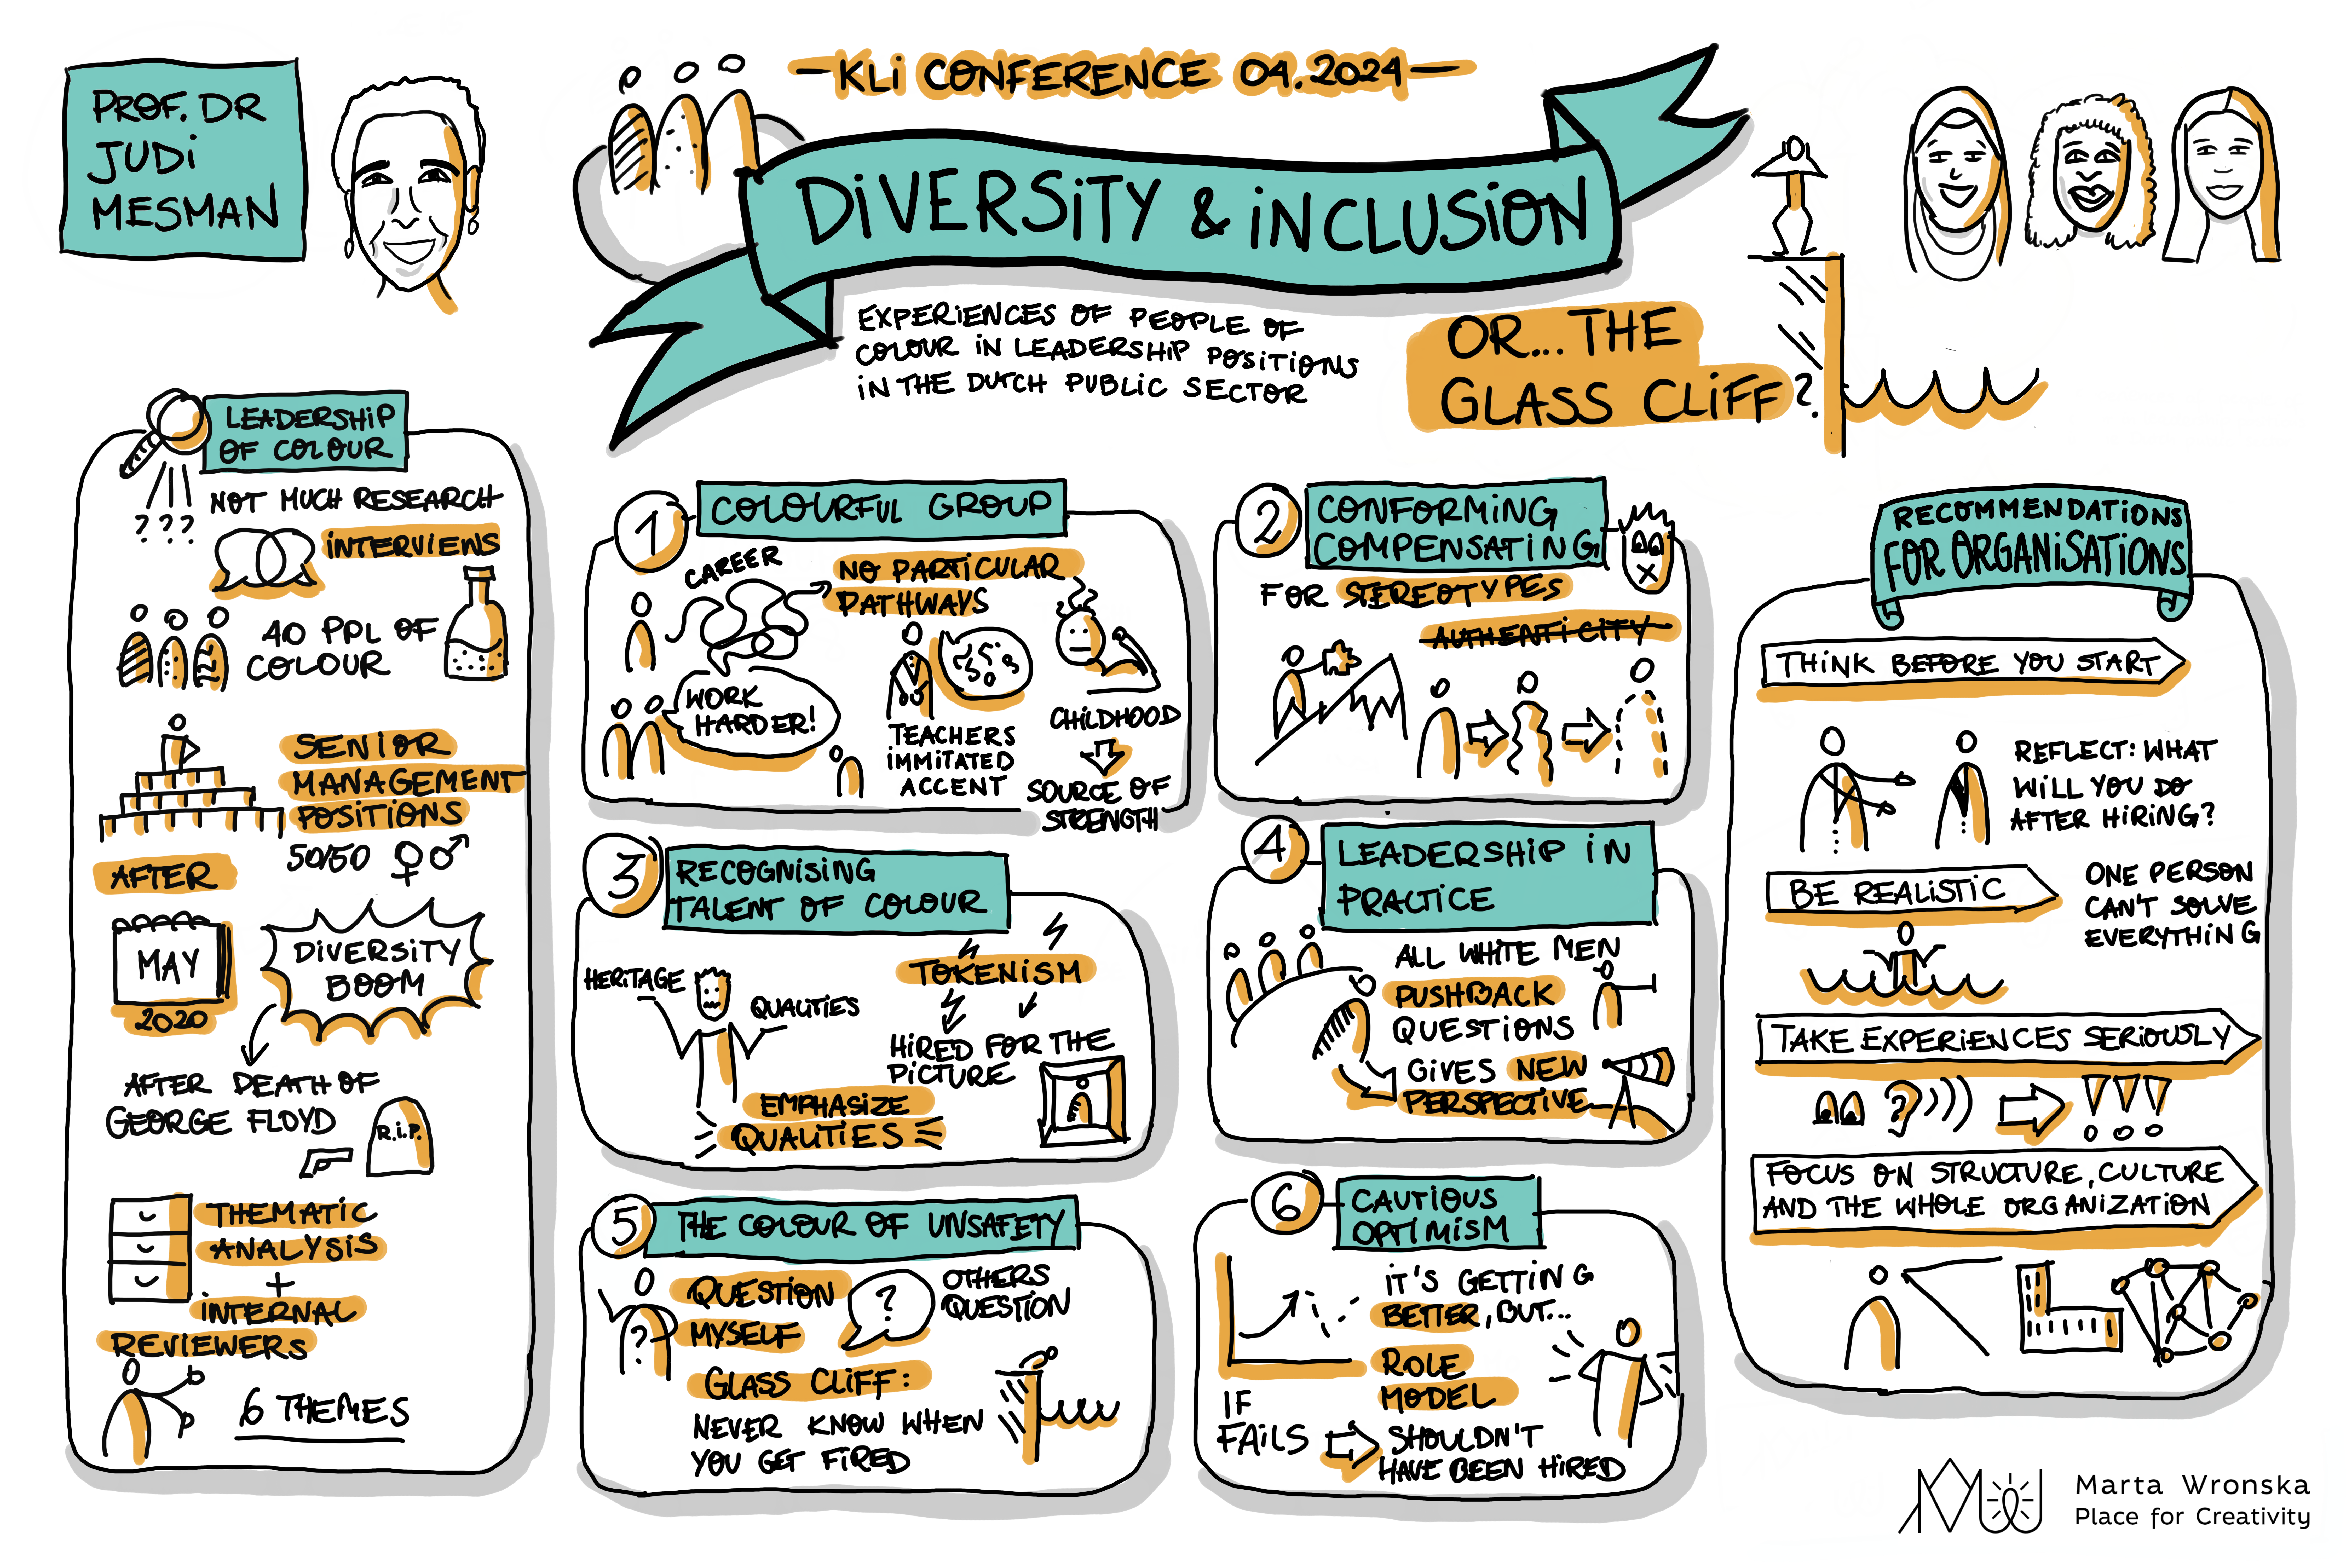 PROF. DR
JUDI
MESMAN
-KLI CONFERENCE 04.2024-
DIVERSITY & INCLUSION
EXPERIENCES OF PEOPLE OF
COLOUR IN LEADERSHIP POSITIONS
IN THE DUTCH PUBLIC SECTOR
OR... THE
GLASS CLIFF?
LEADERSHIP
OF COLOUR
NOT MUCH RESEARCH
???
INTERVIEWS
40 PPL OF
COLOUR
SENIOR
MANAGEMENT
POSITIONS
50/50 ♀♂
AFTER
MAY
2020
DIVERSITY
BOOM
AFTER DEATH OF
GEORGE FLOYD
R.I.P.
THEMATIC
ANALYSIS
+
INTERNAL
REVIEWERS
6 THEMES
1 COLOURFUL GROUP
CAREER
NO PARTICULAR
PATHWAYS
WORK
HARDER!
TEACHERS
IMMITATED
ACCENT
CHILDHOOD
SOURCE OF
STRENGTH
2 CONFORMING
COMPENSATING
FOR STEREOTYPES
AUTHENTICITY
3 RECOGNISING
TALENT OF COLOUR
HERITAGE
QUALITIES
TOKENISM
HIRED FOR THE
PICTURE
EMPHASIZE
QUALITIES
4 LEADERSHIP IN
PRACTICE
ALL WHITE MEN
PUSHBACK
QUESTIONS
GIVES NEW
PERSPECTIVE
5 THE COLOUR OF UNSAFETY
?
QUESTION
MYSELF
?
OTHERS
QUESTION
GLASS CLIFF:
NEVER KNOW WHEN
YOU GET FIRED
6 CAUTIOUS
OPTIMISM
IT'S GETTING
BETTER, BUT...
ROLE
MODEL
IF
FAILS
SHOULDN'T
HAVE BEEN HIRED
RECOMMENDATIONS
FOR ORGANISATIONS
THINK BEFORE YOU START
REFLECT: WHAT
WILL YOU DO
AFTER HIRING?
BE REALISTIC
ONE PERSON
CAN'T SOLVE
EVERYTHING
TAKE EXPERIENCES SERIOUSLY
!!!
FOCUS ON STRUCTURE, CULTURE
AND THE WHOLE ORGANIZATION
Marta Wronska
Place for Creativity